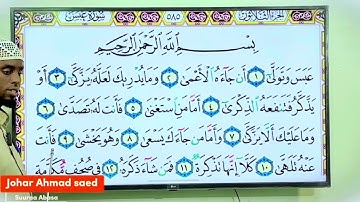 سُورَةُ عَبَسَ
٥٨٥
الجُزءُ الثَّلَاثُونَ
بِسْمِ اللَّهِ الرَّحْمَٰنِ الرَّحِيمِ
عَبَسَ وَتَوَلَّىٰ ١ أَن جَاءَهُ الْأَعْمَىٰ ٢ وَمَا يُدْرِيكَ لَعَلَّهُ يَزَّكَّىٰ ٣ أَوْ
يَذَّكَّرُ فَتَنفَعَهُ الذِّكْرَىٰ ٤ أَمَّا مَنِ اسْتَغْنَىٰ ٥ فَأَنتَ لَهُ تَصَدَّىٰ ٦
وَمَا عَلَيْكَ أَلَّا يَزَّكَّىٰ ٧ وَأَمَّا مَن جَاءَكَ يَسْعَىٰ ٨ وَهُوَ يَخْشَىٰ ٩ فَأَنتَ
عَنْهُ تَلَهَّىٰ ١٠ كَلَّا إِنَّهَا تَذْكِرَةٌ ١١ فَمَن شَاءَ ذَكَرَهُ ١٢ فِي صُحُفٍ مُّكَرَّمَةٍ
Johar Ahmad saed
Suuroo Abasa